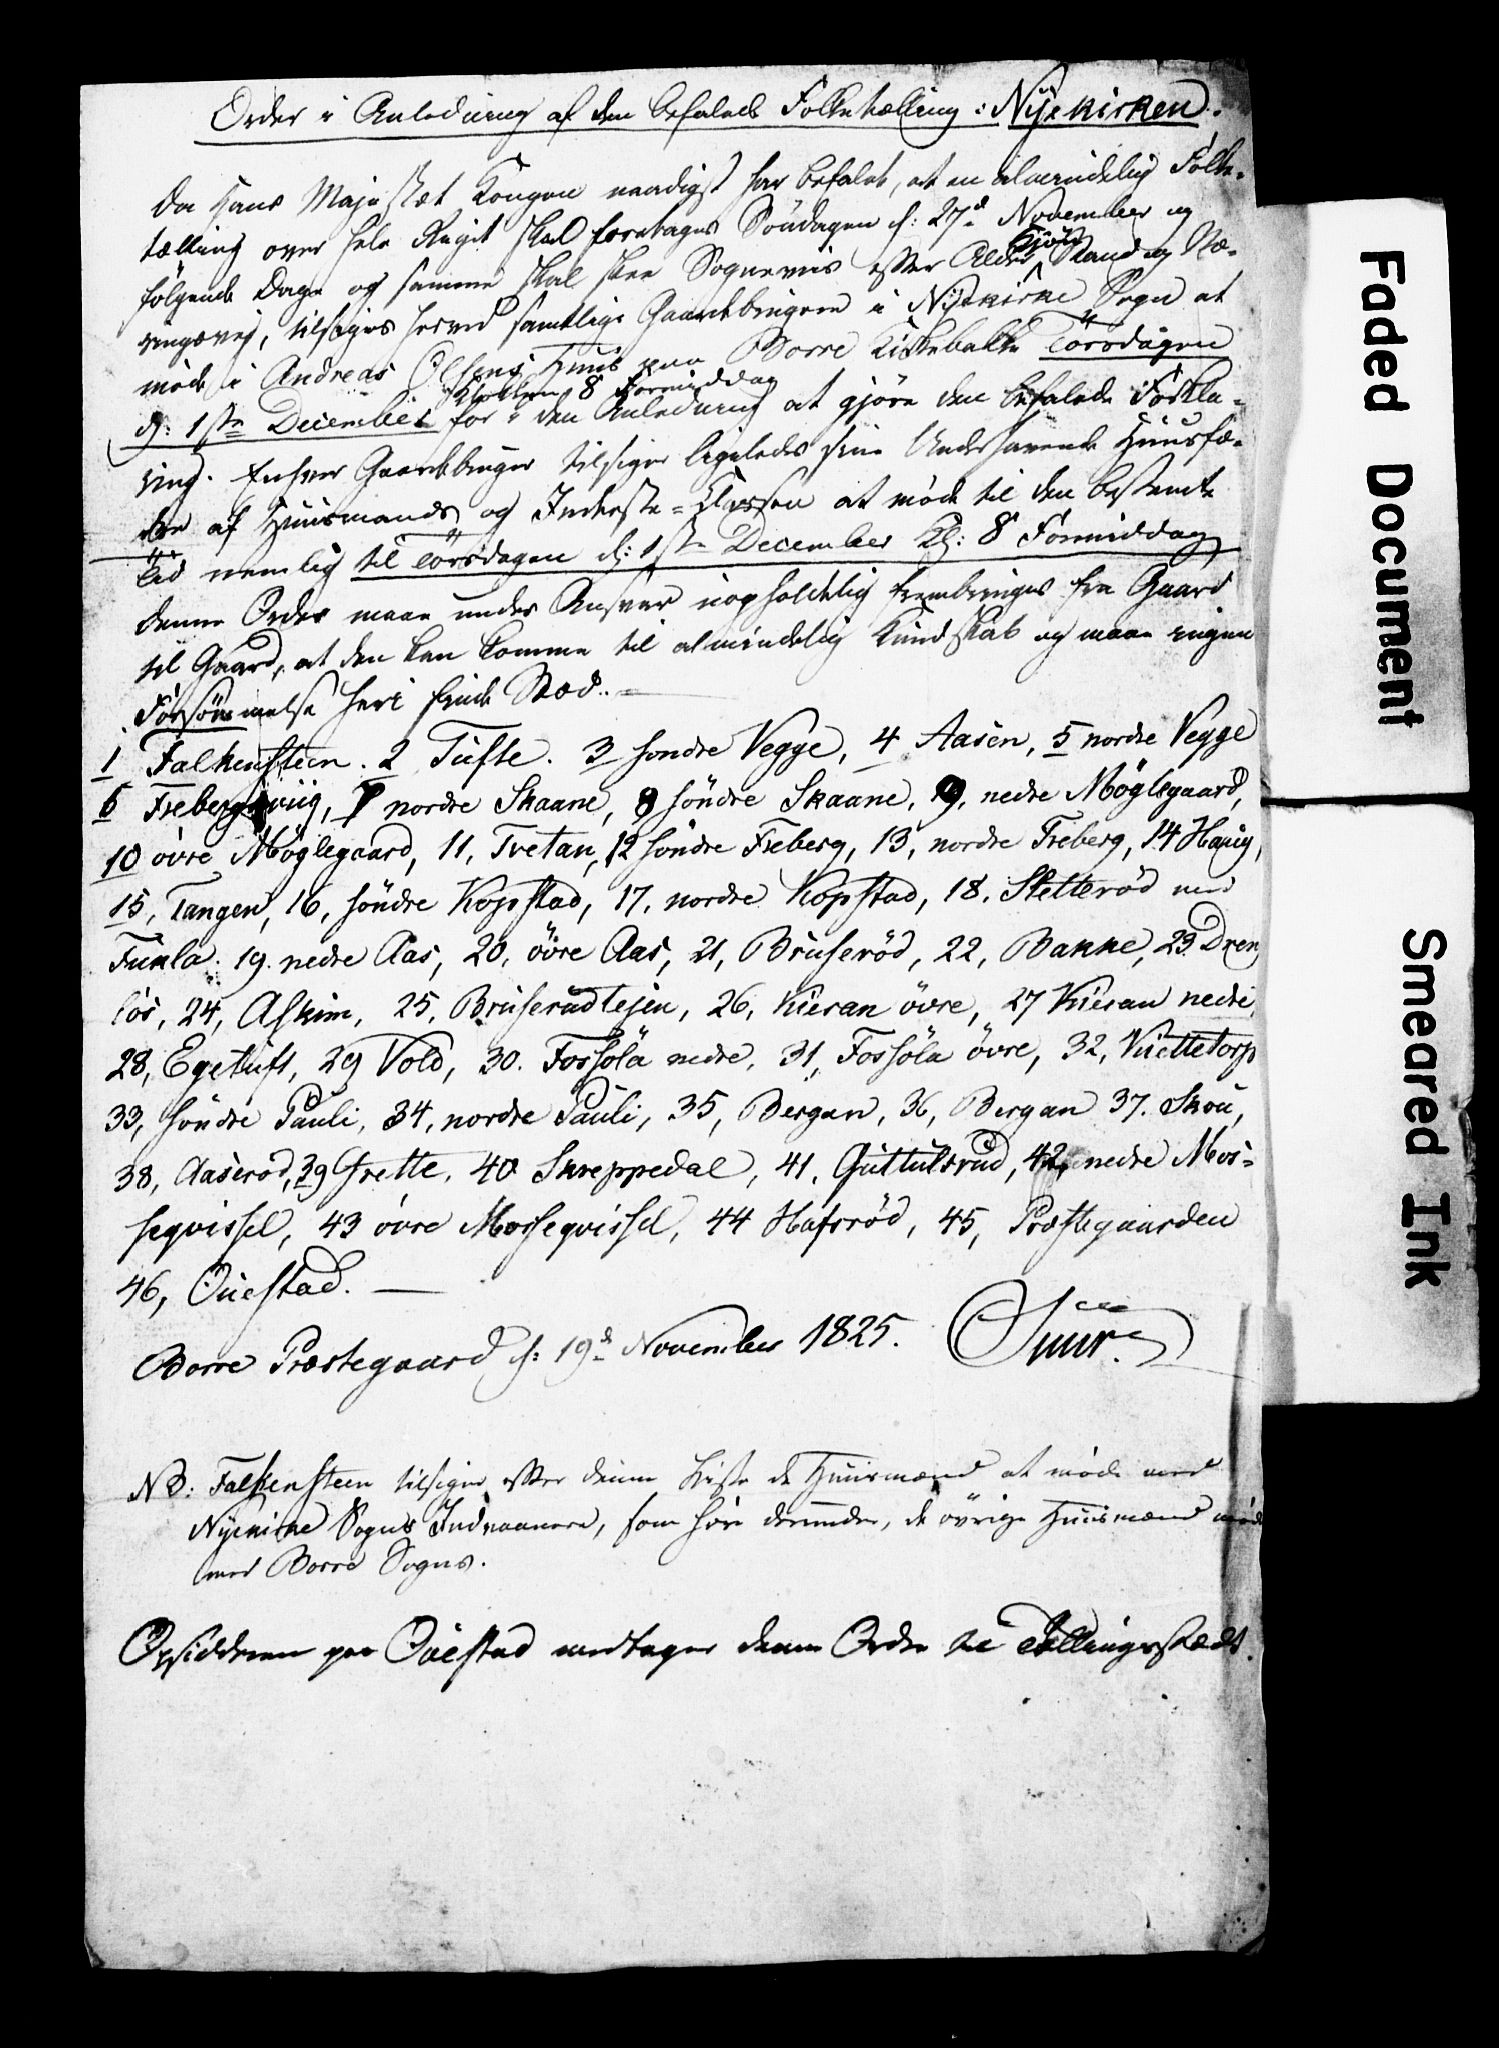 Order i Anledning af den befalede Folketælling i Nÿekirken.
Da Hans Majestæt Kongen naadigst har befalet, at en almindelig Folke-
tælling over hele Riget skal foretages Söndagen d: 27d November og
fölgende Dage og samme skal skee Sogneviis efter Alder, Kjön Stand og Næ-
ringsvej, tilsiges herved samtlige Gaardbrugere i Nÿekirke Sogn at
möde i Andreas Olsens Huus paa Borre Kirkebakke Torsdagen
Klokken 8 Formiddag
d: 1ste December for i den Anledning at gjöre den befalede Forkla-
ring. Enhver Gaardbruger tilsiger ligeledes sine Underhavende Huusfæ-
dre af Huusmands og Inderste-Classen at möde til den bestemte
Tid nemlig til Torsdagen d: 1ste December Kl: 8 Formiddag
Denne Order maae under Ansvar uopholdelig frembringes fra Gaard
til Gaard, at den kan komme til almindelig Kundskab og maae ingen
Forsömmelse heri finde Sted.
1 Falkensteen. 2 Tufte. 3 söndre Vegge, 4 Aasen, 5 nordre Vegge
6 Frebergsviig, 7 nordre Skaane, 8 söndre Skaane, 9, nedre Möglegaard,
10 övre Möglegaard, 11, Tvetan, 12 söndre Freberg, 13, nordre Freberg, 14 Haug,
15, Tangen, 16, söndre Kopstad, 17, nordre Kopstad, 18, Sletteröd med
Fuxla. 19. nedre Aas, 20, övre Aas, 21, Bruseröd, 22, Bakke, 23 Dren
lös, 24, Askim, 25, Bruserudlejen, 26, Kieran övre, 27 Kieran nedre,
28, Egetuft, 29 Vold, 30. Fossöla nedre, 31, Fossöla övre, 32, Viettetorp
33, söndre Pauli, 34, nordre Pauli, 35, Bergan, 36, Bergan 37. Skou,
38, Aaseröd, 39 Grette, 40 Skreppedal, 41, Guttulsrud, 42, nedre Mos-
seqvissel, 43 övre Mosseqvissel, 44 Hafsröd, 45, Præstegaarden
46, Ouestad.
Borre Præstegaard d: 19d November 1825.
NB: Falkensteen tilsiger efter denne Liste de Huusmænd at möde med
Nyekirke Sogns Indvaanere, som höre derunder, de övrige Huusmænd möde
med Borre Sogns.
Opsidderen paa Ouestad medtager denne Order til Tællingsstedet.
Faded Document
Smeared Ink